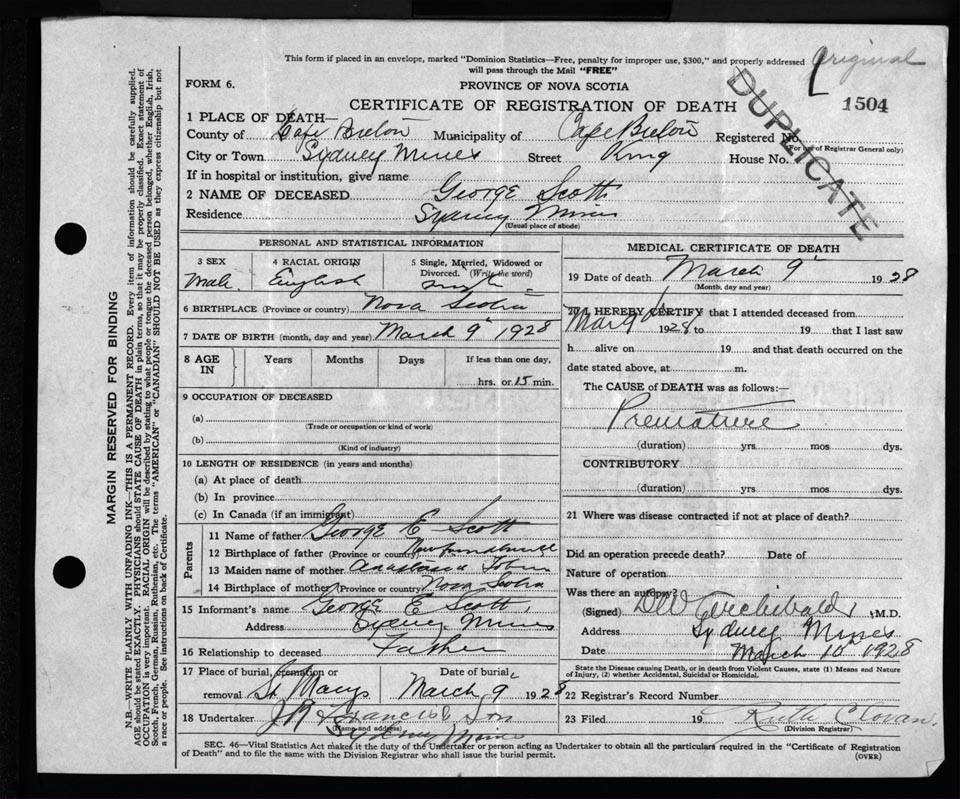 This form if placed in an envelope, marked "Dominion Statistics—Free, penalty for improper use, $300," and properly addressed
will pass through the Mail "FREE"
Original
FORM 6.
PROVINCE OF NOVA SCOTIA
CERTIFICATE OF REGISTRATION OF DEATH
1504
DUPLICATE
1 PLACE OF DEATH—
County of Cape Breton Municipality of Cape Breton Registered No.
(For use of Registrar General only)
City or Town Sydney Mines Street King House No.
If in hospital or institution, give name
2 NAME OF DECEASED George Scott
Residence Sydney Mines
(Usual place of abode)
PERSONAL AND STATISTICAL INFORMATION
3 SEX Male
4 RACIAL ORIGIN English
5 Single, Married, Widowed or Divorced. (Write the word) single
6 BIRTHPLACE (Province or country) Nova Scotia
7 DATE OF BIRTH (month, day and year) March 9 1928
8 AGE IN Years Months Days If less than one day,
hrs. or 15 min.
9 OCCUPATION OF DECEASED
(a)
(Trade or occupation or kind of work)
(b)
(Kind of industry)
10 LENGTH OF RESIDENCE (in years and months)
(a) At place of death
(b) In province
(c) In Canada (if an immigrant)
Parents
11 Name of father George E Scott
12 Birthplace of father (Province or country) Newfoundland
13 Maiden name of mother Anastasia Tobin
14 Birthplace of mother (Province or country) Nova Scotia
15 Informant's name George E Scott
Address Sydney Mines
16 Relationship to deceased Father
17 Place of burial, cremation or removal St Marys
Date of burial March 9 1928
18 Undertaker & Son
(Name and address)
Sydney Mines
MEDICAL CERTIFICATE OF DEATH
19 Date of death March 9 1928
(Month, day and year)
20 I HEREBY CERTIFY that I attended deceased from
Mar 9 1928 to 19 that I last saw
h alive on 19 and that death occurred on the
date stated above, at m.
The CAUSE of DEATH was as follows:—
Premature
(duration) yrs mos dys.
CONTRIBUTORY
(duration) yrs mos dys.
21 Where was disease contracted if not at place of death?
Did an operation precede death? Date of
Nature of operation
Was there an autopsy?
(Signed) Archibald M.D.
Address Sydney Mines
Date March 10 1928
State the Disease causing Death, or in death from Violent Causes, state (1) Means and Nature
of Injury, (2) whether Accidental, Suicidal or Homicidal.
22 Registrar's Record Number
23 Filed 19 Ruth
(Division Registrar)
SEC. 46—Vital Statistics Act makes it the duty of the Undertaker or person acting as Undertaker to obtain all the particulars required in the "Certificate of Registration
of Death" and to file the same with the Division Registrar who shall issue the burial permit.
(OVER)
MARGIN RESERVED FOR BINDING
N.B.—WRITE PLAINLY WITH UNFADING INK—THIS IS A PERMANENT RECORD. Every item of information should be carefully supplied.
AGE should be stated EXACTLY. PHYSICIANS should STATE CAUSE OF DEATH in plain terms, so that it may be properly classified. Exact statement of
OCCUPATION is very important. RACIAL ORIGIN will be described by stating to what people or tongue the deceased person belonged, whether English, Irish,
Scotch, French, German, Russian, Ruthenian, etc. The terms "AMERICAN" or "CANADIAN" SHOULD NOT BE USED as they express citizenship but not
a race or people. See instructions on back of Certificate.